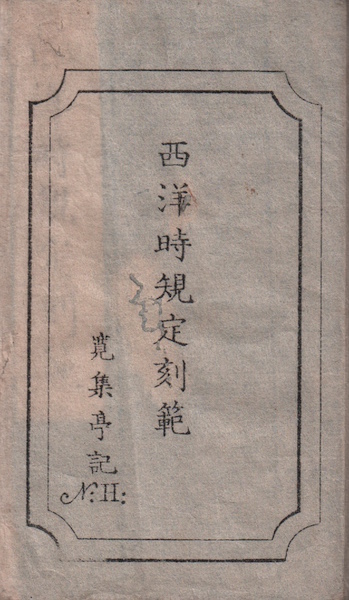 西洋時規定刻範
寛集亭記
N: H: